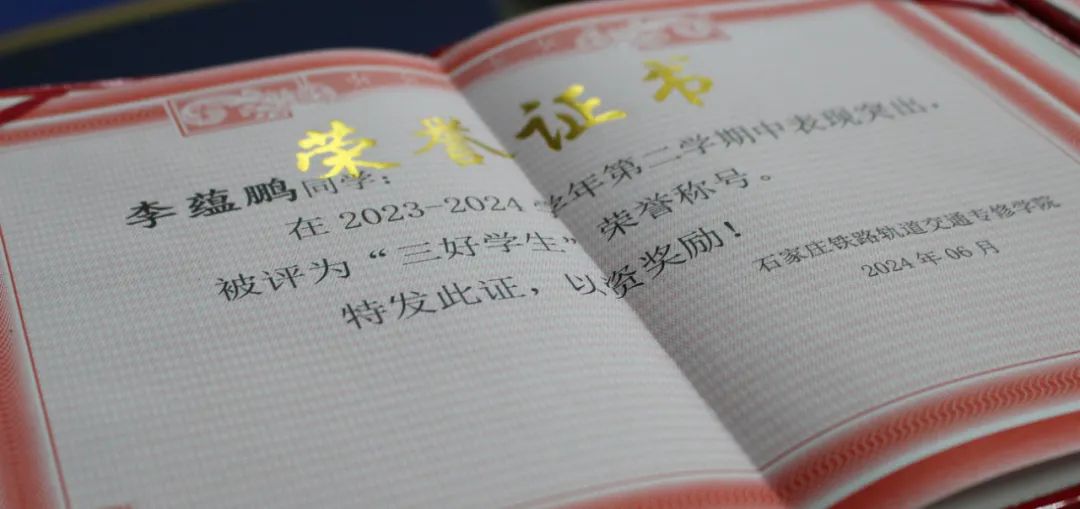 荣誉证书
李蕴鹏同学:
在 2023-2024 学年第二学期中表现突出,
被评为“三好学生”荣誉称号。
特发此证,以资奖励!
石家庄铁路轨道交通专修学院
2024 年 06 月